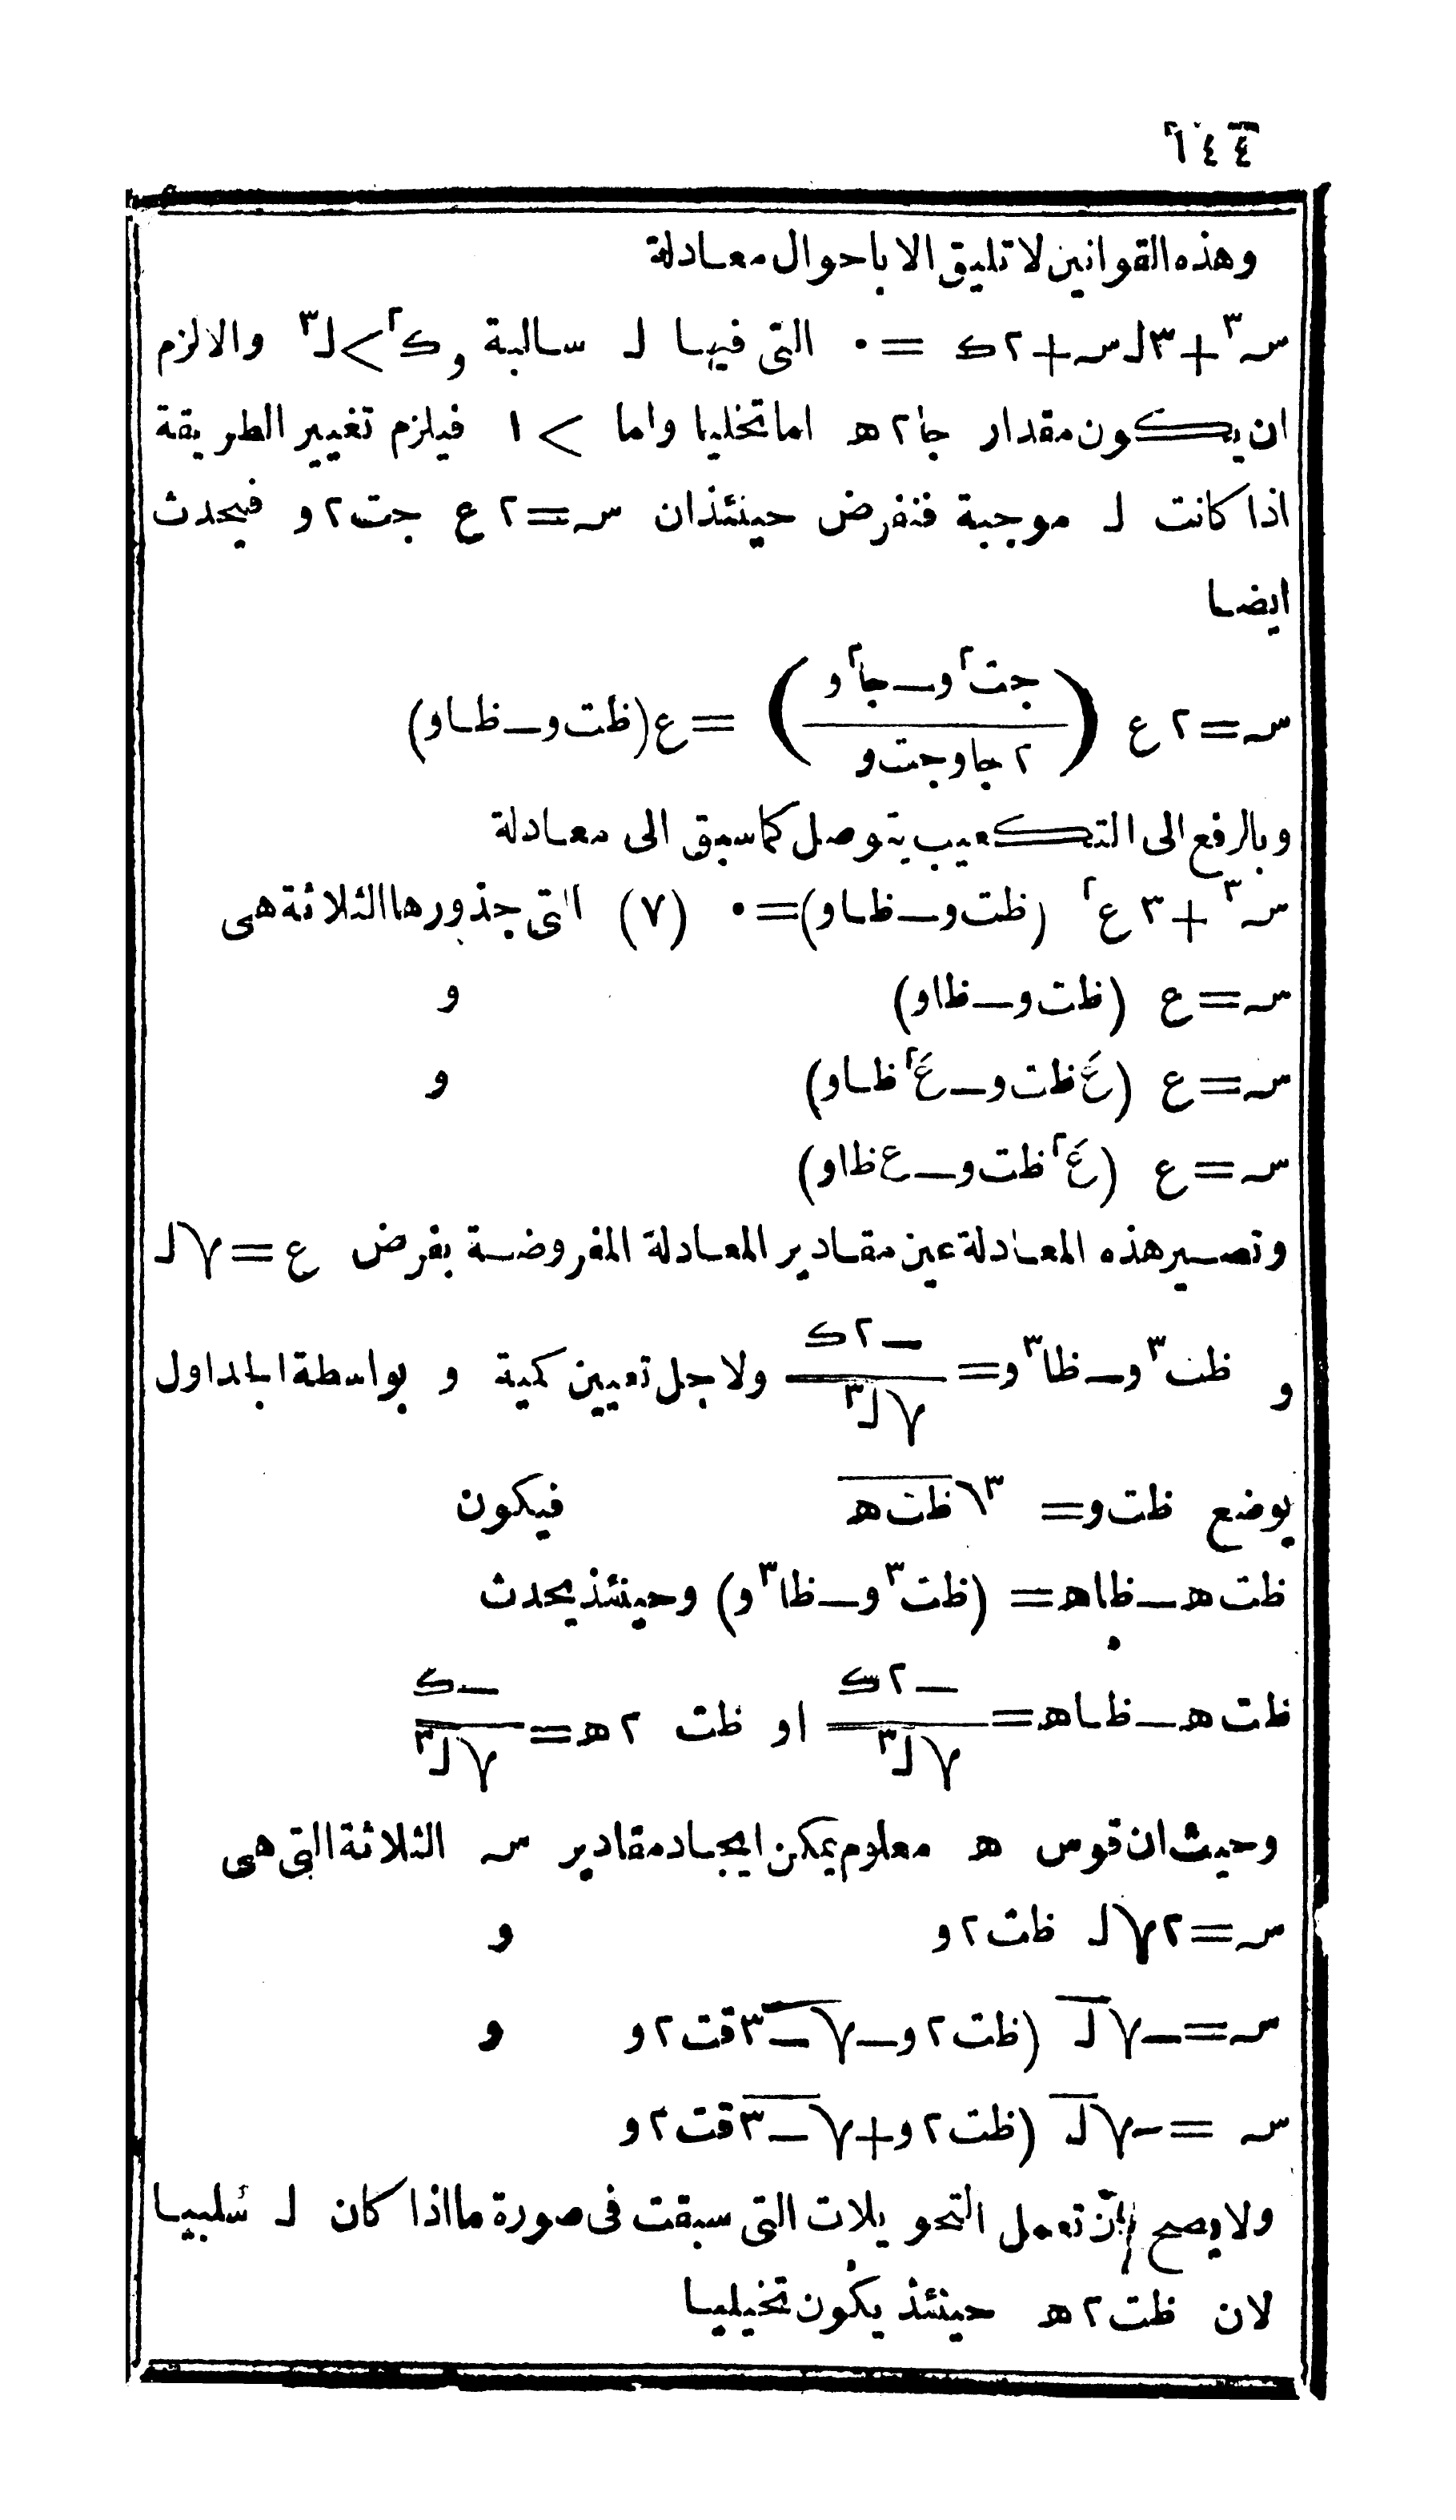 ٦٤٤
وهذه القوانين لا تليق الا باحوال معادلة
س٣+٣لس+٢ك = ٠ التى فيها ل سالبة وك٢>ل٣ والالزم
ان يكون مقدار جا٢ه اما تخليا واما > ١ فيلزم تغيير الطريقة
اذا كانت ل موجبة فتفرض حينئذان س=٢ع جت٢و فيحدث
ايضا
س=٢ع (جت٢و–جا٢و / ٢جاوجتو) =ع(ظتو–ظاو)
وبالرفع الى التكعيب يتوصل كماسبق الى معادلة
س٣+٣ع٢ (ظتو–ظاو)=٠ (٧) التى جذورها الثلاثة هى
س=ع (ظتو–ظاو) و
س=ع (عَظتو–عَ٢ظاو) و
س=ع (عَ٢ظتو–عظاو)
وتصير هذه المعادلة عين مقادير المعادلة المفروضة بفرض ع=√ل
و ظت٣و–ظا٣و= –٢ك / √ل٣ ولاجل تعيين كمية و بواسطة الجداول
يوضع ظتو= ٣√ظته فيكون
ظته–ظاه= (ظت٣و–ظا٣و) وحينئذ يحدث
ظته–ظاه= –٢ك / √ل٣ او ظت ٢ه= –ك / √ل٣
وحيث ان قوس ه معلوم يمكن ايجاد مقادير س الثلاثة التى هى
س=٢√ل ظت٢و و
س=–√ل (ظت٢و–√–٣قت٢و و
س =–√ل (ظت٢و+√–٣قت٢و
ولا يصح ان تعمل التحويلات التى سبقت فى صورة مااذا كان ل سلبيا
لان ظت٢ه حينئذ يكون تخيليا